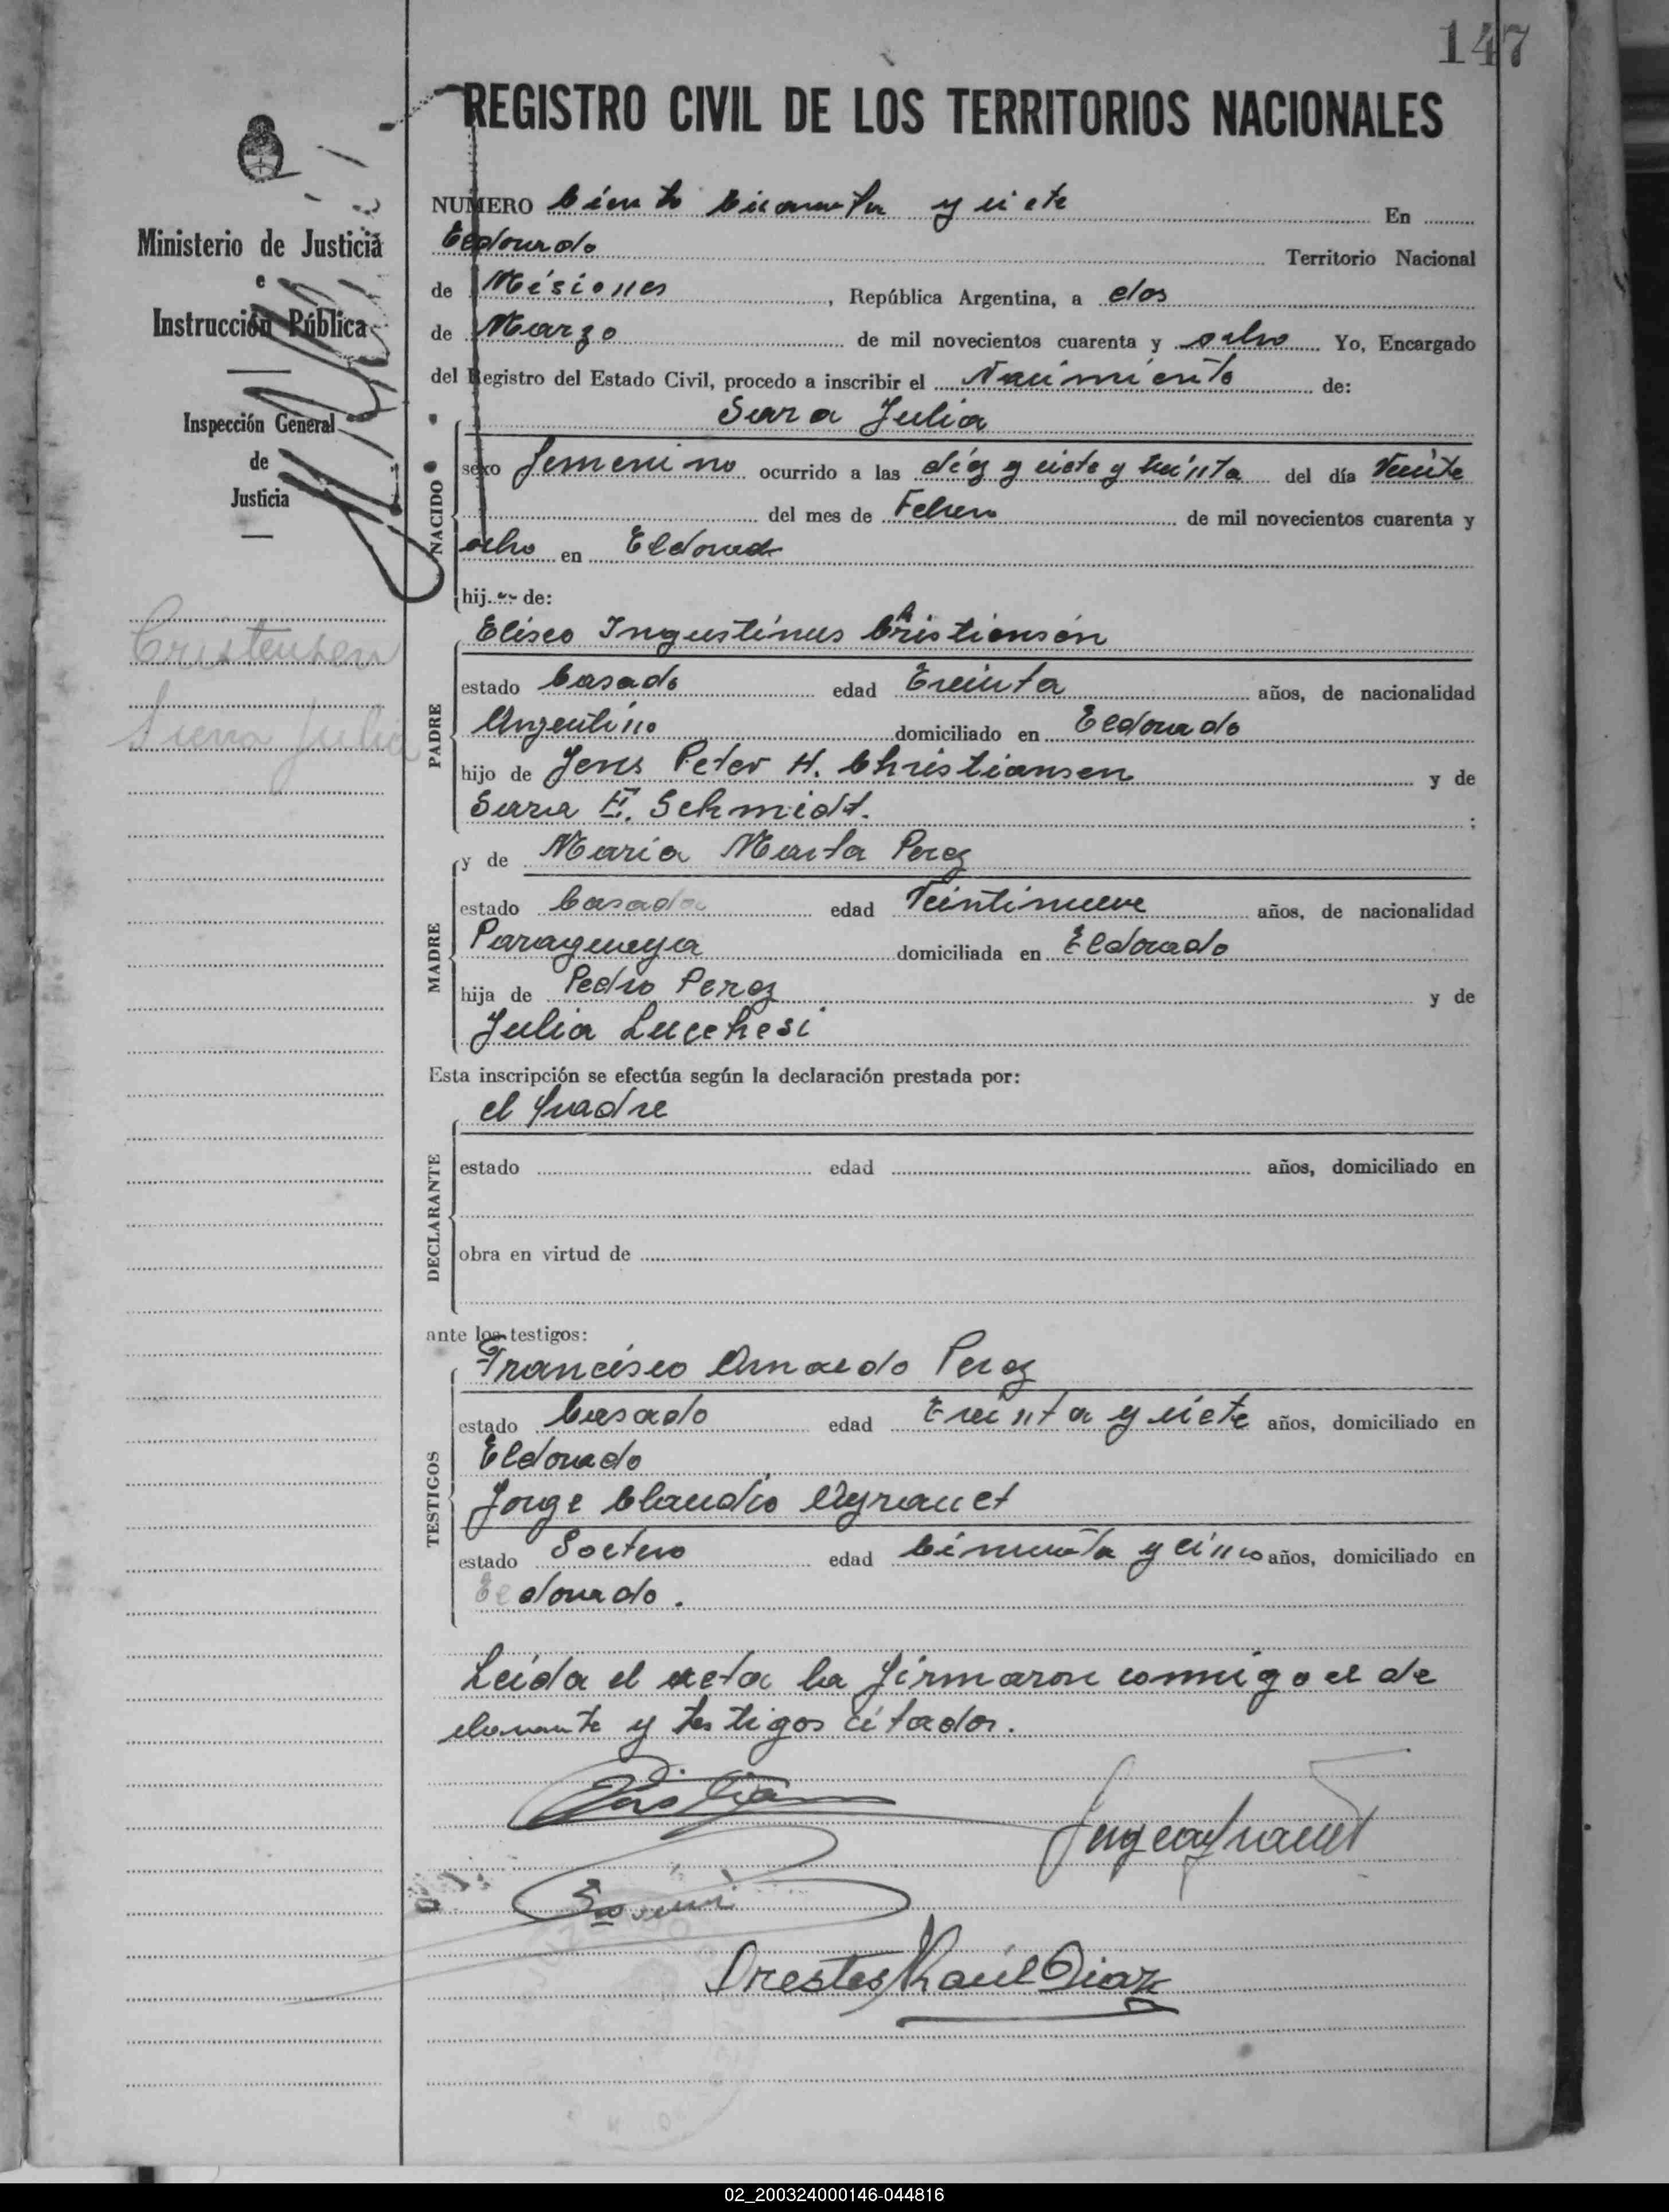 147
REGISTRO CIVIL DE LOS TERRITORIOS NACIONALES
Ministerio de Justicia
e
Instrucción Pública
Inspección General
de
Justicia
Cristensen
Sara Julia
NUMERO Ciento cincuenta y siete En
Eldorado Territorio Nacional
de Misiones, República Argentina, a dos
de Marzo de mil novecientos cuarenta y ocho Yo, Encargado
del Registro del Estado Civil, procedo a inscribir el Nacimiento de:
Sara Julia
NACIDO
sexo femenino ocurrido a las diez y siete y treinta del día Veinte
del mes de Febrero de mil novecientos cuarenta y
ocho en Eldorado
hij de:
PADRE
Eliseo Ingustinus Cristiansen
estado Casado edad Treinta años, de nacionalidad
Argentino domiciliado en Eldorado
hijo de Jens Peter H. Christiansen y de
Sara E. Schmidt. ;
MADRE
y de María Marta Perez
estado Casada edad Veintinueve años, de nacionalidad
Paraguaya domiciliada en Eldorado
hija de Pedro Perez y de
Julia Lucchesi
Esta inscripción se efectúa según la declaración prestada por:
DECLARANTE
el padre
estado edad años, domiciliado en
obra en virtud de
ante los testigos:
TESTIGOS
Francisco Arnaldo Perez
estado Casado edad Treinta y siete años, domiciliado en
Eldorado
Jorge Claudio
estado Soltero edad Cincuenta y cinco años, domiciliado en
Eldorado.
Leída el acta la firmaron conmigo el de
clarante y testigos citados.
Orestes Raúl Diaz
02_200324000146-044816